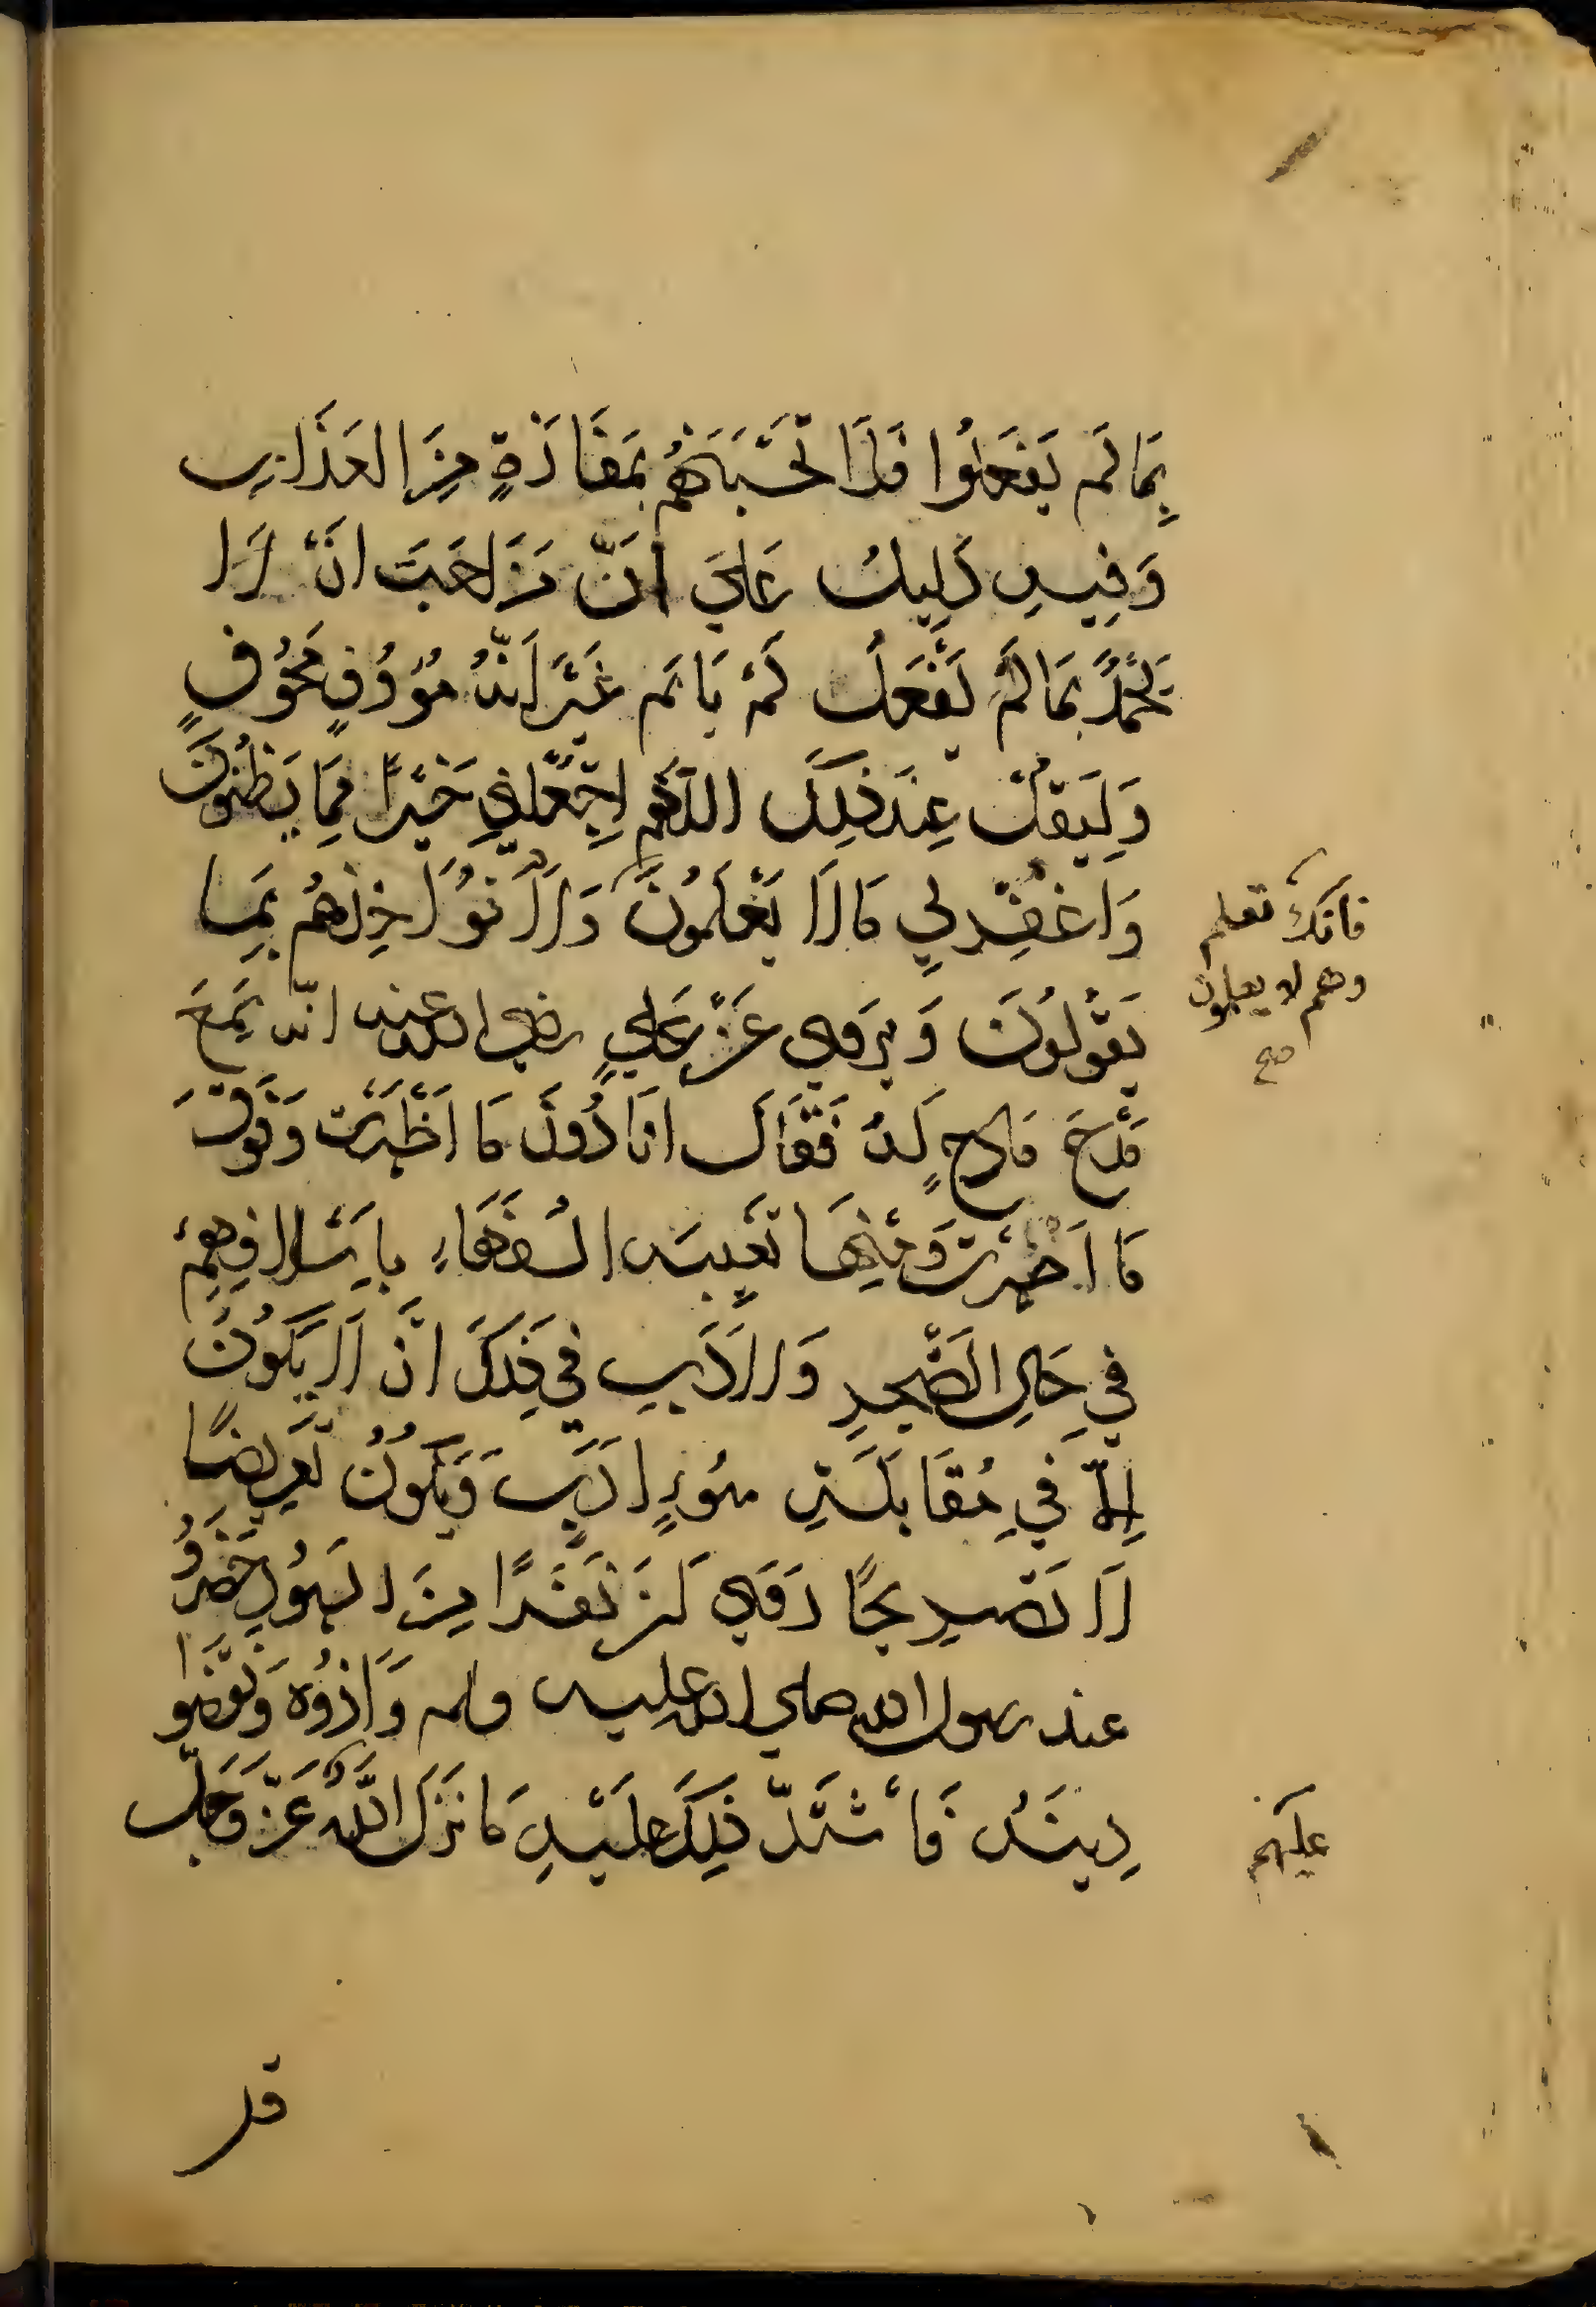 بِمَا لَم يَفعَلُوا فَلَا تَحْسَبَنَّهُمْ بِمَفَازَةٍ مِنَ العَذَابِ
وَفِيهِ دَلِيلٌ عَلَى اَنَّ مَن اَحَبَّ اَنْ لَا
يُحْمَدَ بِمَا لَمْ يَفْعَل لَمْ يَاثَم غَيْرَ اَنَّهُ مَؤُوفٍ مَخُوفٍ
وَلِيَقُلْ عِنْدَ ذٰلِكَ اللّٰهُم اِجْعَلْنِي خَيْرًا مِمَا يَظُنُّونَ
وَاغْفِرْ لِي مَا لَا يَعْلَمُونَ وَلَا تُوَاخِذْهُم بِمَا
يَقُولُونَ وَيُروى عَنْ عَلِيٍ رضي الله عنه انّه سَمِعَ
مَدْحَ مَادِحٍ لَهُ فَقَالَ اَنَا دُونَ مَا اَظْهَرْتَ وَفَوْقَ
مَا اَضْمَرْتَ وَمِنْهَا تَعيِيبُ السُفَهَاءِ بِاَسْلَافِهِمْ
فِي حَالِ الضَّجَرِ وَالْاَدَبُ فِي ذٰلِكَ اَنْ لَا يَكُونَ
اِلَّا فِي مُقَابَلَةِ سُوءِ اَدَبٍ وَيَكُونُ تَعْرِيضًا
لَا تَصرِيحًا رَوي اَنَّ نَفَرًا مِنَ اليَهُودِ حَضَرُوا
عند رسول الله صلى الله عليه وسلم وَاَذَوْهُ وَنَقَّصُوا
دِينَهُ فَاشْتَدَّ ذٰلِكَ عَلَيْهِ فَانزَلَ اللّٰهُ عَزَّ وَجَلَّ
فانك تعلم
وهم لا يعلمون
صح
عليهم
قل